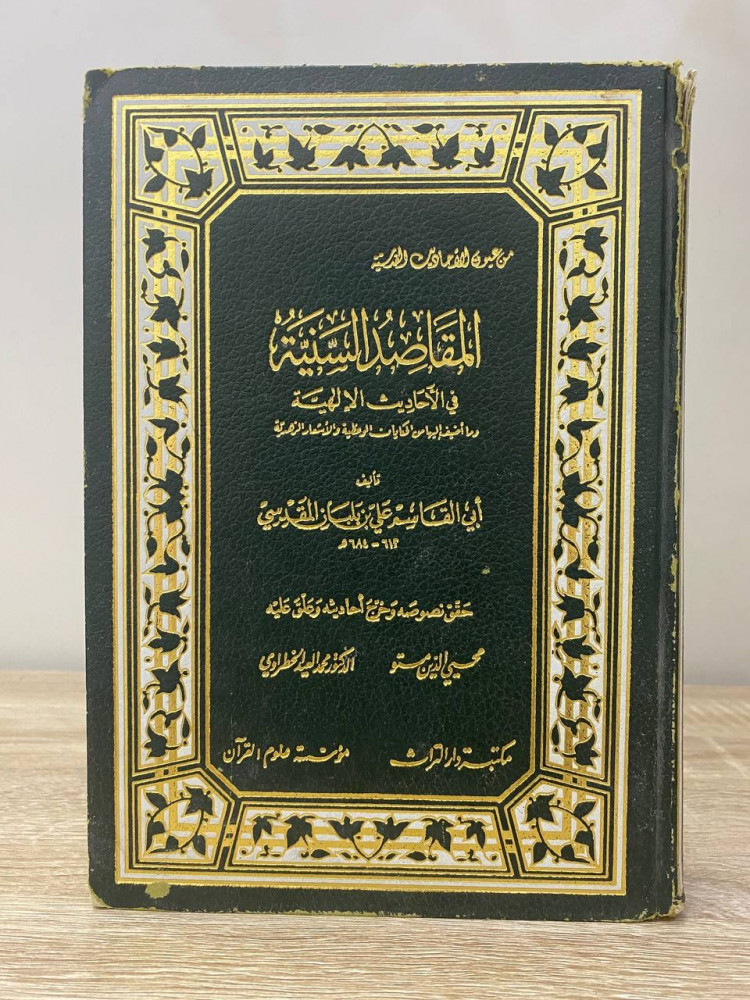 من عيون الأحاديث القدسية
المَقَاصِدُ السَّنِيَّةُ
في الأحاديث الإلهية
وما أضيف إليها من الحكايات الوعظية والأشعار الزهدية
تأليف
أبي القاسم علي بن بلبان المقدسي
٦١٢ - ٦٨٤ هـ
حقق نصوصه وخرج أحاديثه وعلق عليه
محيي الدين مستو الدكتور محمد العيد الخطراوي
مكتبة دار التراث مؤسسة علوم القرآن